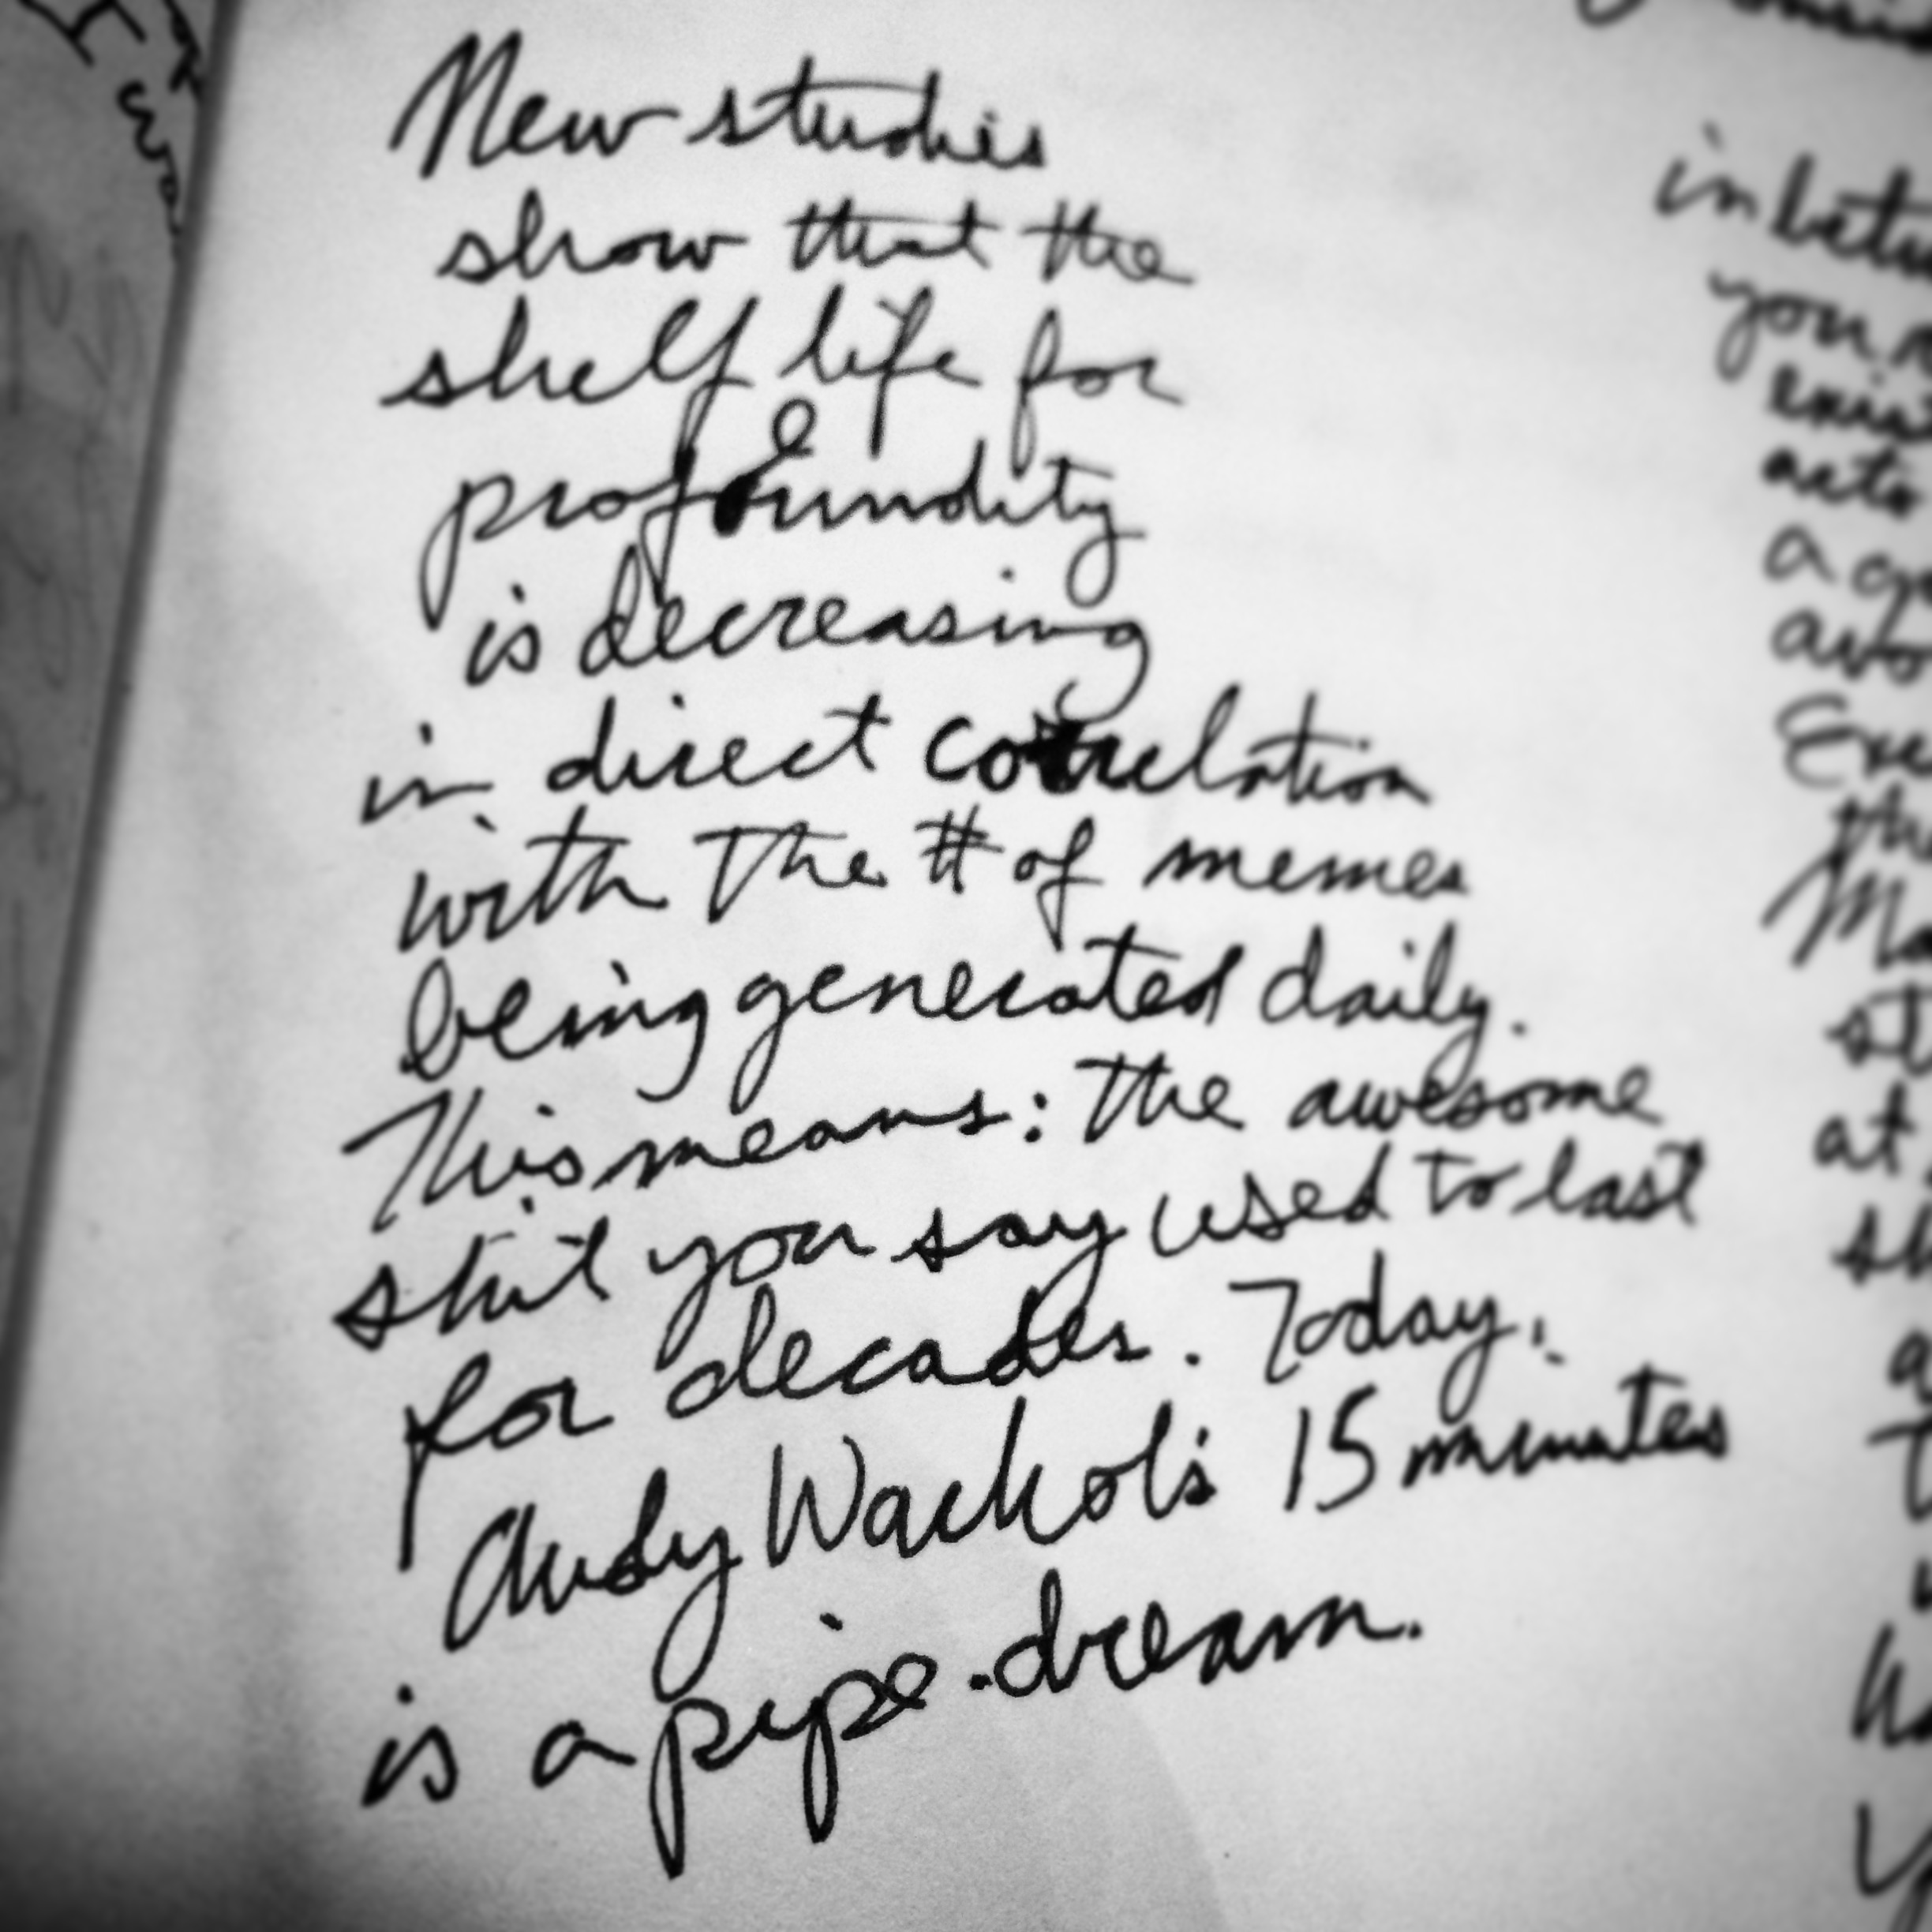 New studies
show that the
shelf life for
profoundity
is decreasing
in direct correlation
with the # of memes
being generated daily.
This means: the awesome
shit you say used to last
for decades. Today,
Andy Warhol's 15 minutes
is a pipe-dream.
you
at
a